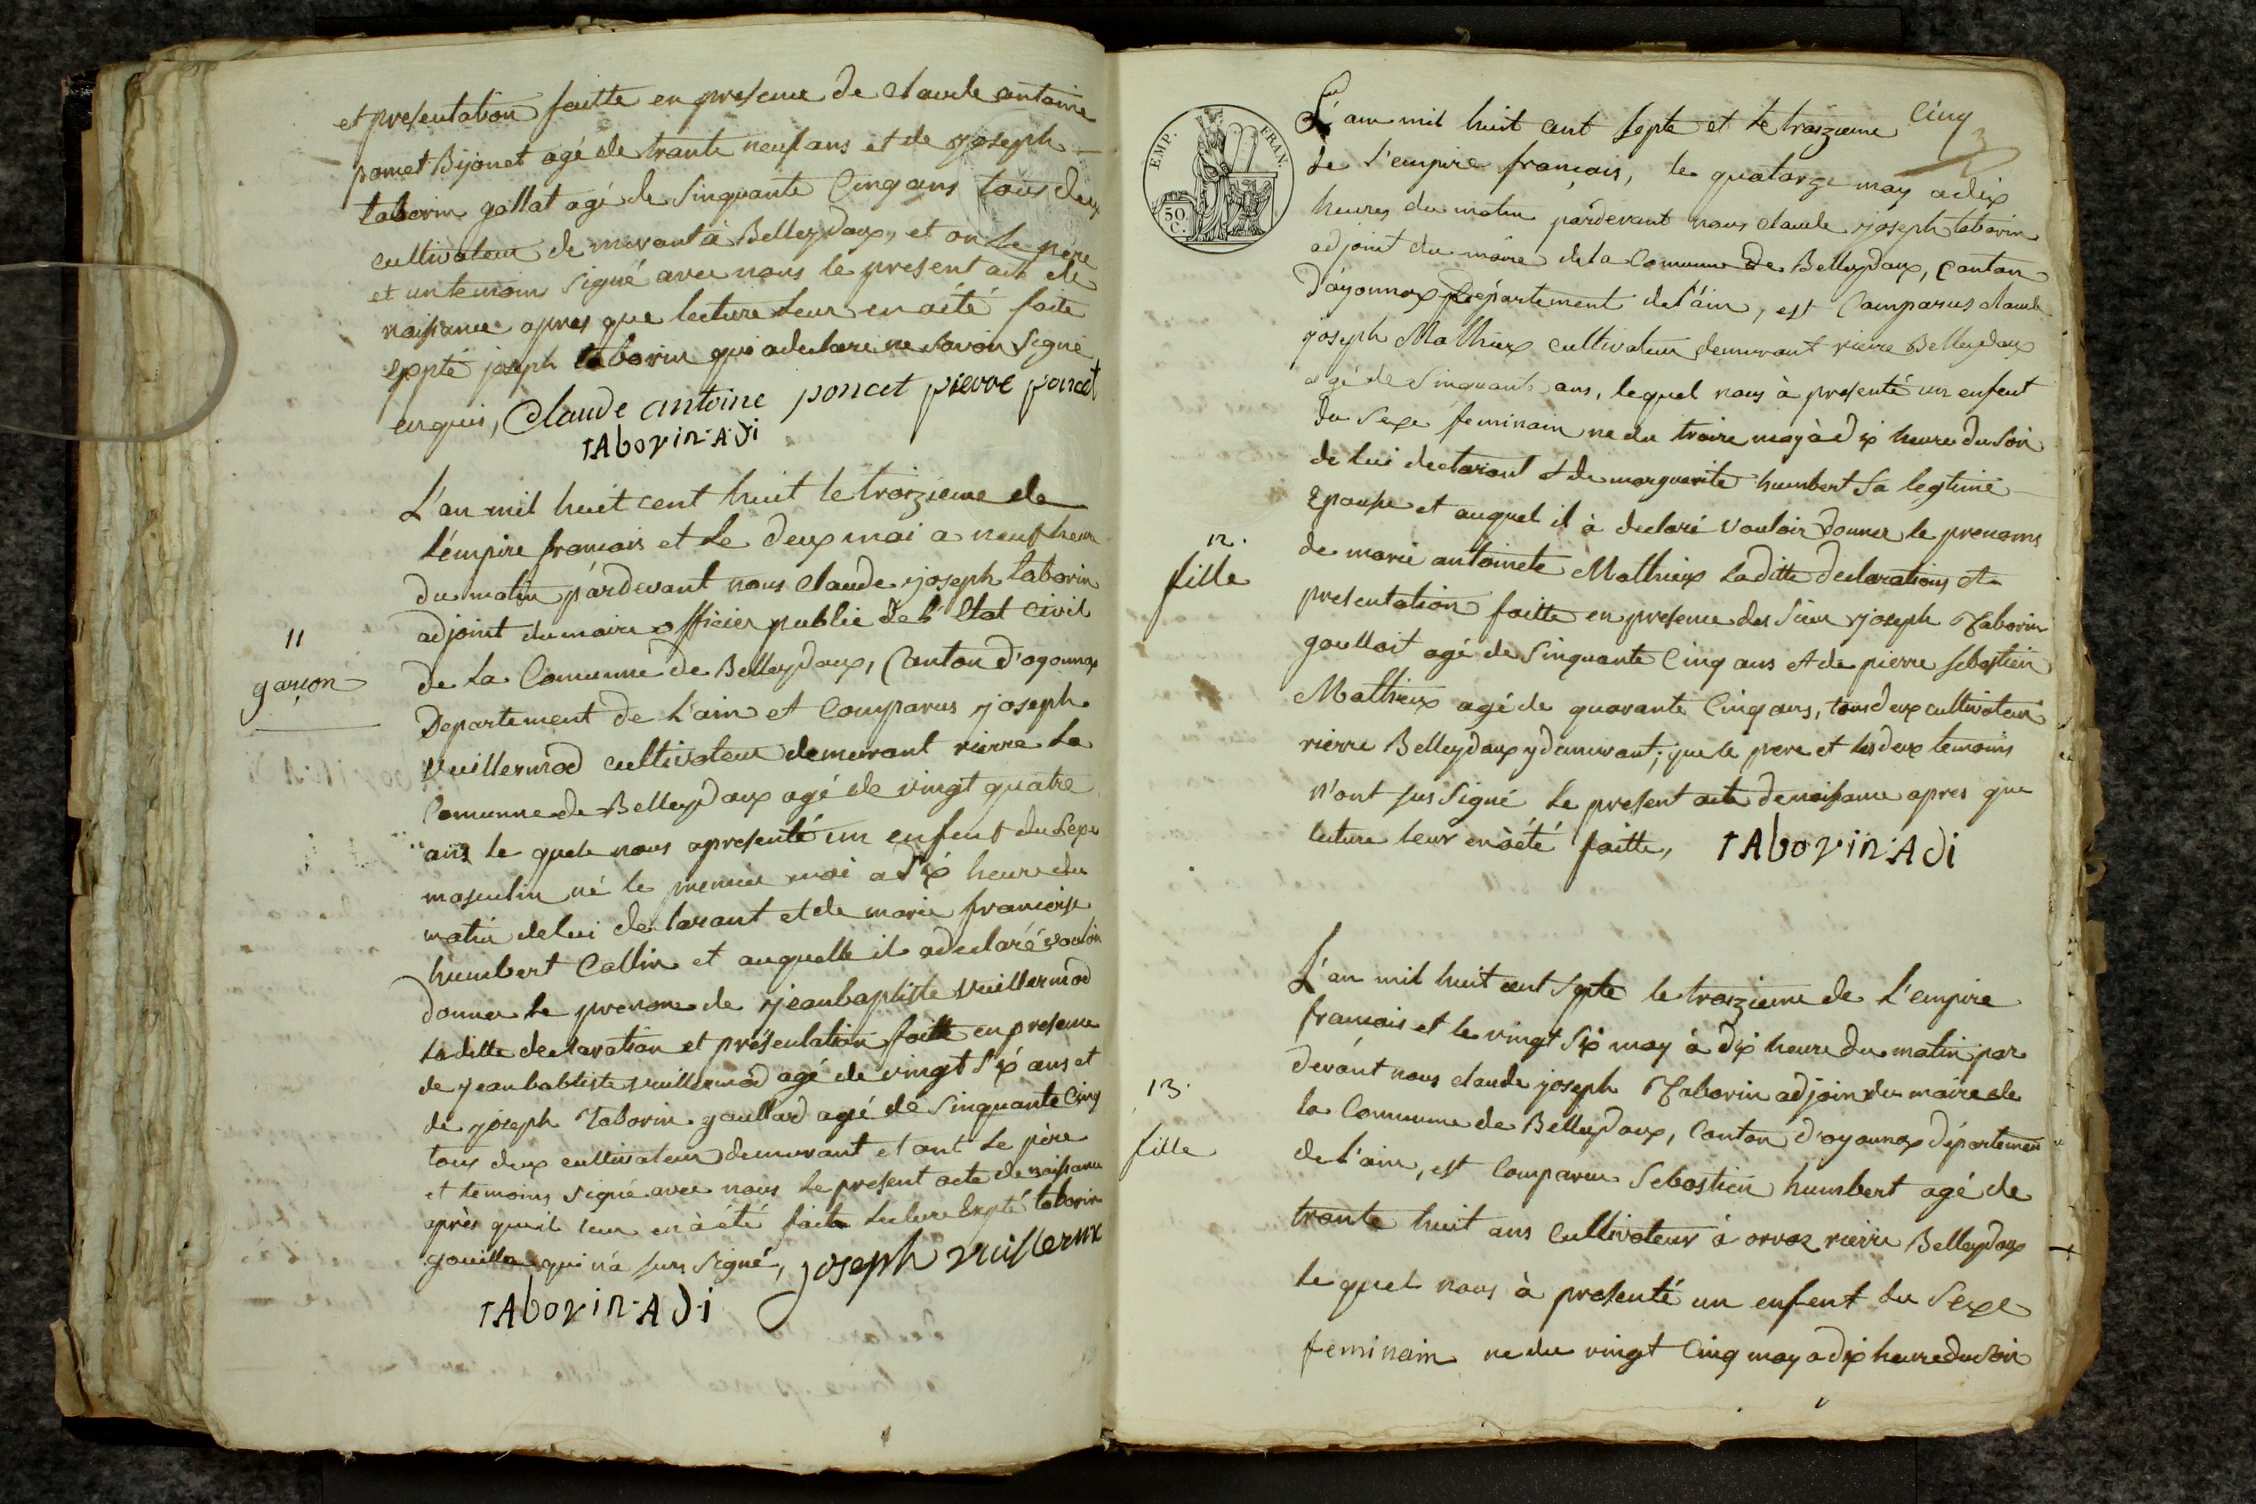 et presentation faitte en presence de claude antoine
poncet Bijonet agé de trante neuf ans et de joseph
taborin gollat agé de sinquante Cinq ans tous deux
cultivateur demeurant à Belleydoux, et on le père
et un temoins signé avec nous le present acte de
naissance apres que lecture leur en a été faite
expté joseph taborin qui a declare ne savoir signé
enquis, Claude antoine poncet pierre poncet
TAborin.A.Di
L'an mil huit cent huit le troizieme de
l'empire francais et le deux mai a neuf heur
du matin pardevant nous Claude joseph taborin
adjoint du maire officier public de l'Etat Civil
11
de la Comunne de Belleydoux, Canton d'oyonnax
garçon
Departement de l'ain et Comparus joseph
Vuillermod cultivateur demeurant rierre la
Comunne de Belleydoux agé de vingt quatre
ans le quele nous a presenté un enfent du sexe
masculin né le premier mai a dix heure du
matin de lui declarant et de marie francoise
humbert Collin et auquelle il a declaré vouloir
donner le prenom de jean baptiste Vuillermod
la ditte declaration et présentation faitte en presence
de jean babtiste vuillermod agé de vingt six ans et
de joseph Taborin goullad agé de sinquante Cinq
tous deux cultivateur demeurant et ont le père
et temoins signé avec nous le present acte de naissance
après qu'il leur en à été faite lecture expté taborin
gouilla qui n'a sus signé, joseph vuillermx
TAborin.A.D.i
Cinq
EMP. FRAN.
50. C.
L'ann mil huit cent septe et le troizieme
de l'empire francais, le quatorze may a dix
heures du matin pardevant nous claude joseph taborin
adjoint du maire de la Comune de Belleydoux, Canton
d'oyonnax Département de l'ain, est Comparus claude
joseph Mathieux cultivateur demeurant rierre Belleydoux
agé de sinquante ans, lequel nous à presenté un enfent
du sexe feminain ne du traize may à dix heure du soir
de lui declarant et de marguerite humbert sa legtime
Epouse et auquel il à declaré vouloir donner le prenoms
12.
de marie antoinete Mathieux la ditte declarations et
fille
presentation faitte en presence des sieur joseph Taborin
goulloit agé de sinquante Cinq ans et de pierre sebastien
Mathieux agé de quarante Cinq ans, tous deux cultivateur
rierre Belleydoux y demeurant; que le pere et les deux temoins
n'ont sus signé le present acte de naissance apres que
lecture leur en à été faitte, TAborin.ADi
L'an mil huit cent septe le troizieme de L'empire
francais et le vingt six may à dix heure du matin par
devant nous claude joseph Taborin adjoin du maire de
13.
la Commune de Belleydoux, Canton d'oyonnax département
fille
de l'ain, est Comparu Sebastien humbert agé de
trante huit ans Cultivateur à orvaz rierre Belleydoux
le quel nous à presenté un enfent du Sexe
feminain ne du vingt Cinq may a dix heure du soir